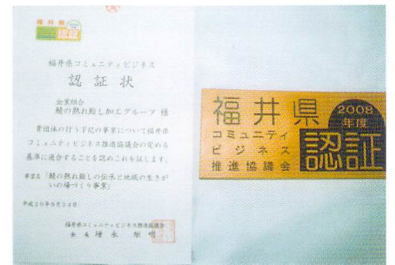 福井県
認証
福井県コミュニティビジネス
認証状
企業組合
鯖の熟れ鮨し加工グループ 様
貴団体の行う下記の事業について福井県
コミュニティビジネス推進協議会の定める
基準に適合することを認めこれを証します。
事業名「鯖の熟れ鮨しの伝承と地域の生きが
いの場づくり事業」
平成20年9月24日
福井県コミュニティビジネス推進協議会
会長
福井県
コミュニティ
ビジネス
推進協議会
2008
年度
認証